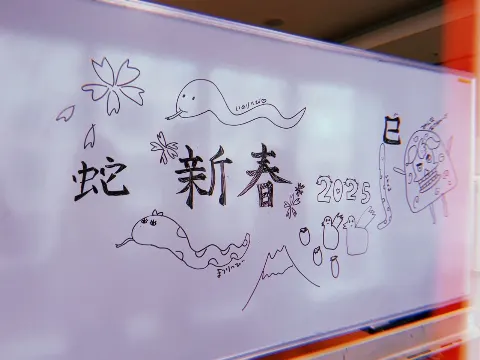 蛇 新春 2025
巳